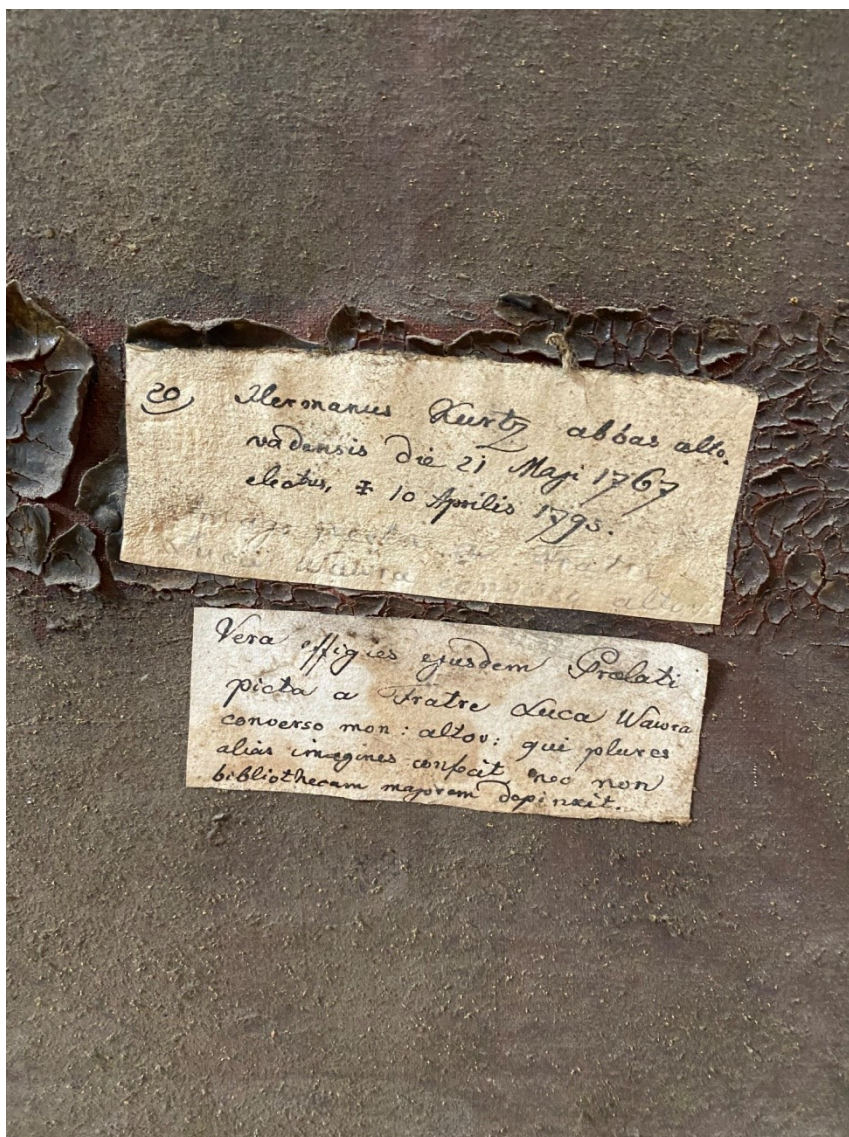 20 Hermanus Kurtz abbas alto.
vadensis die 21 Maji 1767
electus, ‡ 10 Aprilis 1795.
Imago picta a Fratre
Luca Wawra converso altov
Vera effigies ejusdem Prælati
picta a Fratre Luca Wawra
converso mon: altov: qui plures
alias imagines confecit nec non
bibliothecam majorem depinxit.